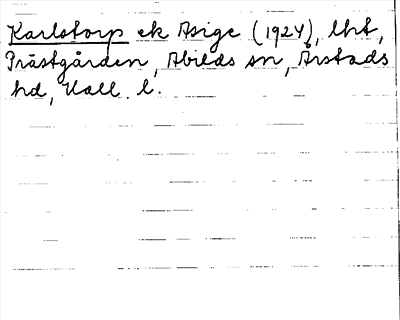 Karlstorp ek Asige (1924), lht,
Prästgården, Abilds sn, Årstads
hd, Hall. l.